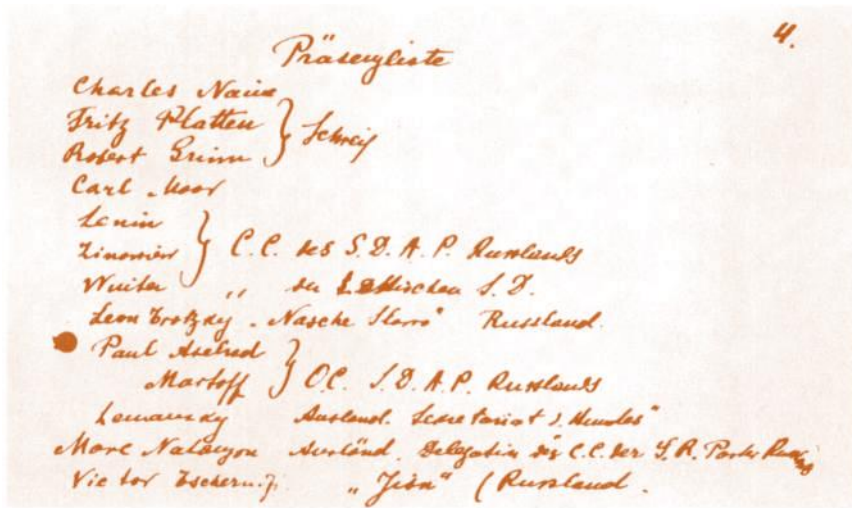 4.
Präsenzliste
Charles Naine
Fritz Platten
Robert Grimm } Schweiz
Carl Moor
Lenin
Zinowiew } C.C. des S.D.A.P. Russlands
Winter " der Lettischen S.D.
Leon Trotzky "Nasche Slowo" Russland.
Paul Axelrod
Martoff } O.C. S.D.A.P. Russlands
Lemansky Ausländ. Sekretariat d. "Bundes"
Marc Natanson Ausländ. Delegation des C.C. der S.R. Partei
Victor Tschernoff "Jisn" (Russland.